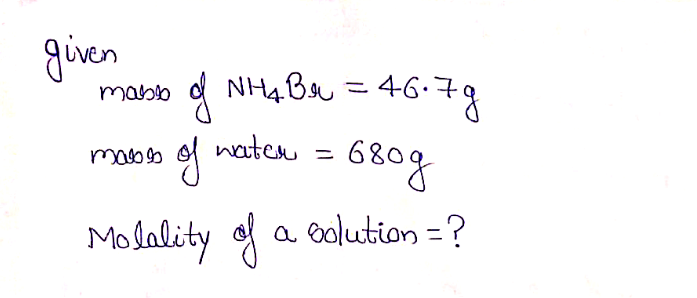 given
mass of NH4Br = 46.7g
mass of water = 680g
Molality of a solution = ?